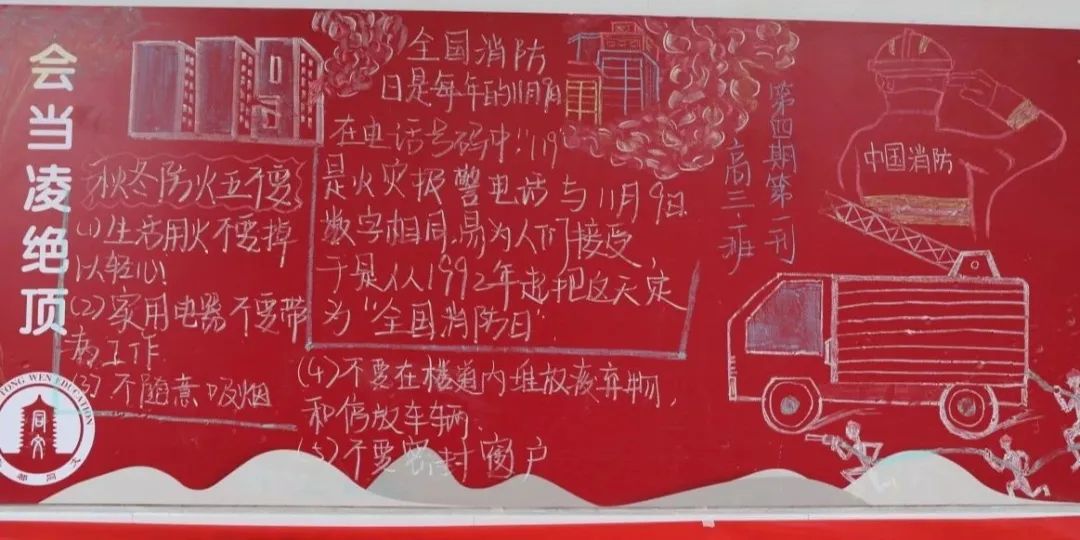 会当凌绝顶
全国消防
日是每年的11月9日
在电话号码中"119
是火灾报警电话与11月9日
数字相同,易为人们接受,
于是从1992年起把这天定
为"全国消防日"
秋冬防火五不要
(1)生活用火不要掉
以轻心!
(2)家用电器不要带
病工作
(3)不随意吸烟
(4)不要在楼道内堆放废弃物,
和停放车辆.
(5)不要密封窗户
第四期第一刊
高三·一班
中国消防
TONG WEN EDUCATION
同文